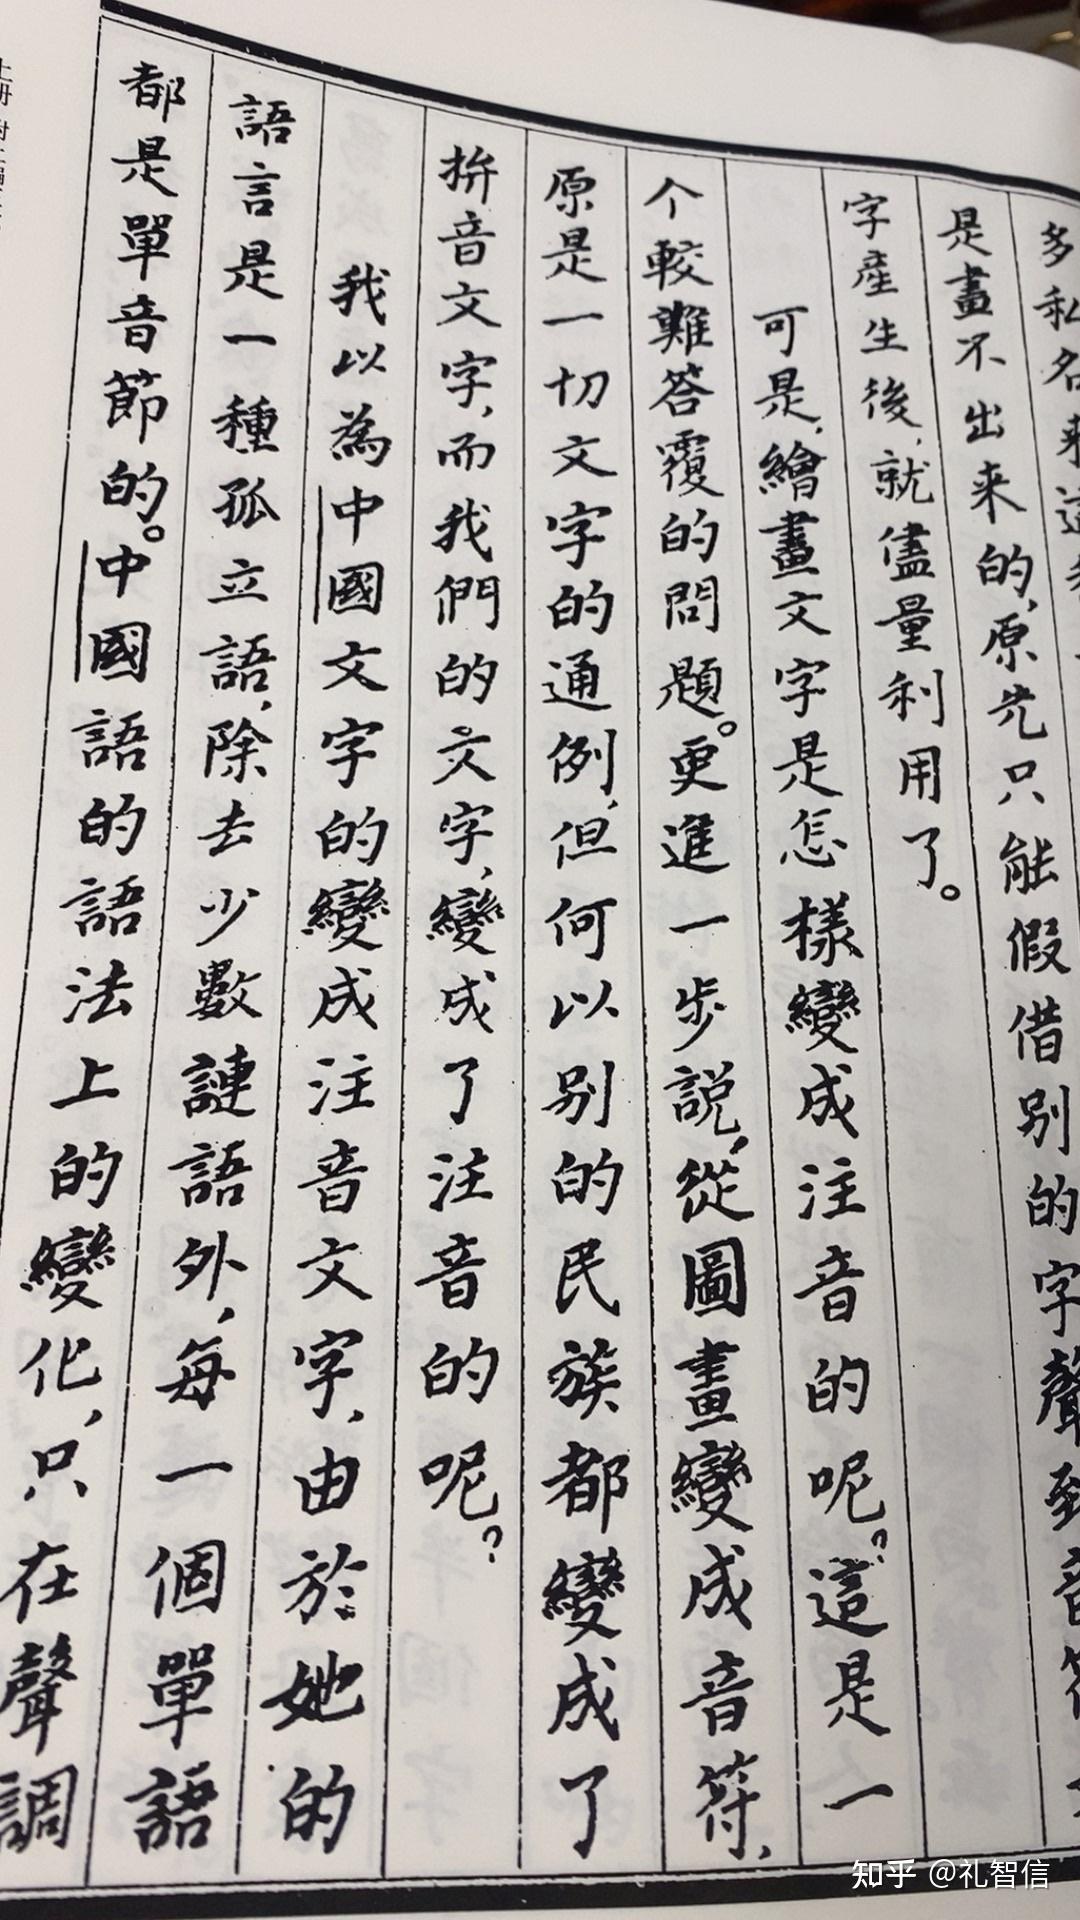 多私名来這
是畫不出来的,原先只能假借別的字聲到音符
字產生後,就儘量利用了。
可是,繪畫文字是怎樣變成注音的呢?這是一
个較難答覆的問題。更進一步説,從圖畫變成音符,
原是一切文字的通例,但何以別的民族都變成了
拚音文字,而我們的文字,變成了注音的呢?
我以為中國文字的變成注音文字,由於她的
語言是一種孤立語,除去少數謰語外,每一個單語
都是單音節的。中國語的語法上的變化,只在聲調
知乎 @礼智信